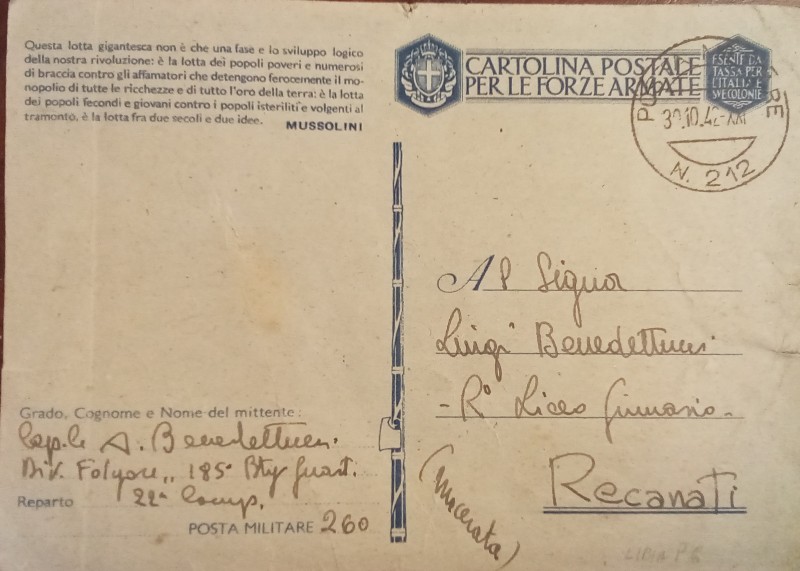 Questa lotta gigantesca non è che una fase e lo sviluppo logico
della nostra rivoluzione: è la lotta dei popoli poveri e numerosi
di braccia contro gli affamatori che detengono ferocemente il mo-
nopolio di tutte le ricchezze e di tutto l'oro della terra: è la lotta
dei popoli fecondi e giovani contro i popoli isteriliti e volgenti al
tramonto, è la lotta fra due secoli e due idee.
MUSSOLINI
CARTOLINA POSTALE
PER LE FORZE ARMATE
ESENTE DA
TASSA PER
L'ITALIA E
SUE COLONIE
.10.42-XXI
N. 212
Al Signor
Luigi Benedettucci
- R° Liceo Ginnasio -
Recanati
(Macerata)
Grado, Cognome e Nome del mittente:
Cap.le A. Benedettucci
Div. Folgore,, 185° Btg Guast.
Reparto 22ª Comp.
POSTA MILITARE 260